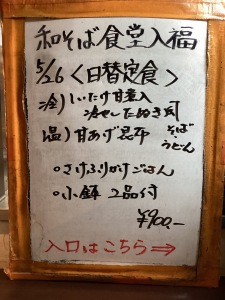 和そば食堂入福
5/26 <日替定食>
冷)しいたけ甘煮入
冷やしたぬき
温)甘あげ昆布
そば・うどん
○さけふりかけごはん
○小鉢 2品付
¥900-
入口はこちら⇒